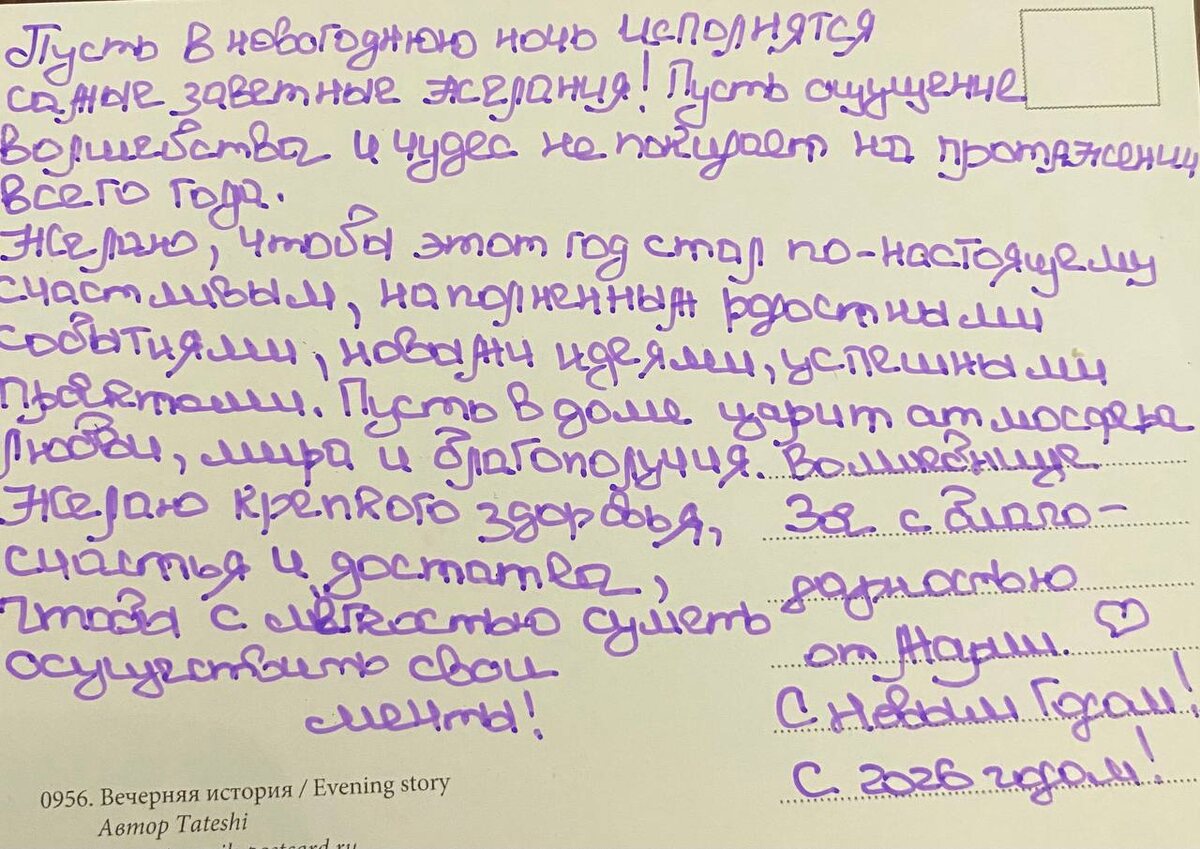 Пусть в новогоднюю ночь исполнятся
самые заветные желания! Пусть ощущение
волшебства и чудес не покидает на протяжении
всего года.
Желаю, чтобы этот год стал по-настоящему
счастливым, наполненным рдостными
событиями, новыми идеями, успешными
проектами. Пусть в доме царит атмосфера
любви, мира и благополучия.
Желаю крепкого здоровья,
счастья и достатка,
чтобы с лёгкостью суметь
осуществить свои
мечты!
Волшебнице
Зое с благо-
дарностью
от Марии.
С Новым Годом!
С 2026 годом!
0956. Вечерняя история / Evening story
Автор Tateshi